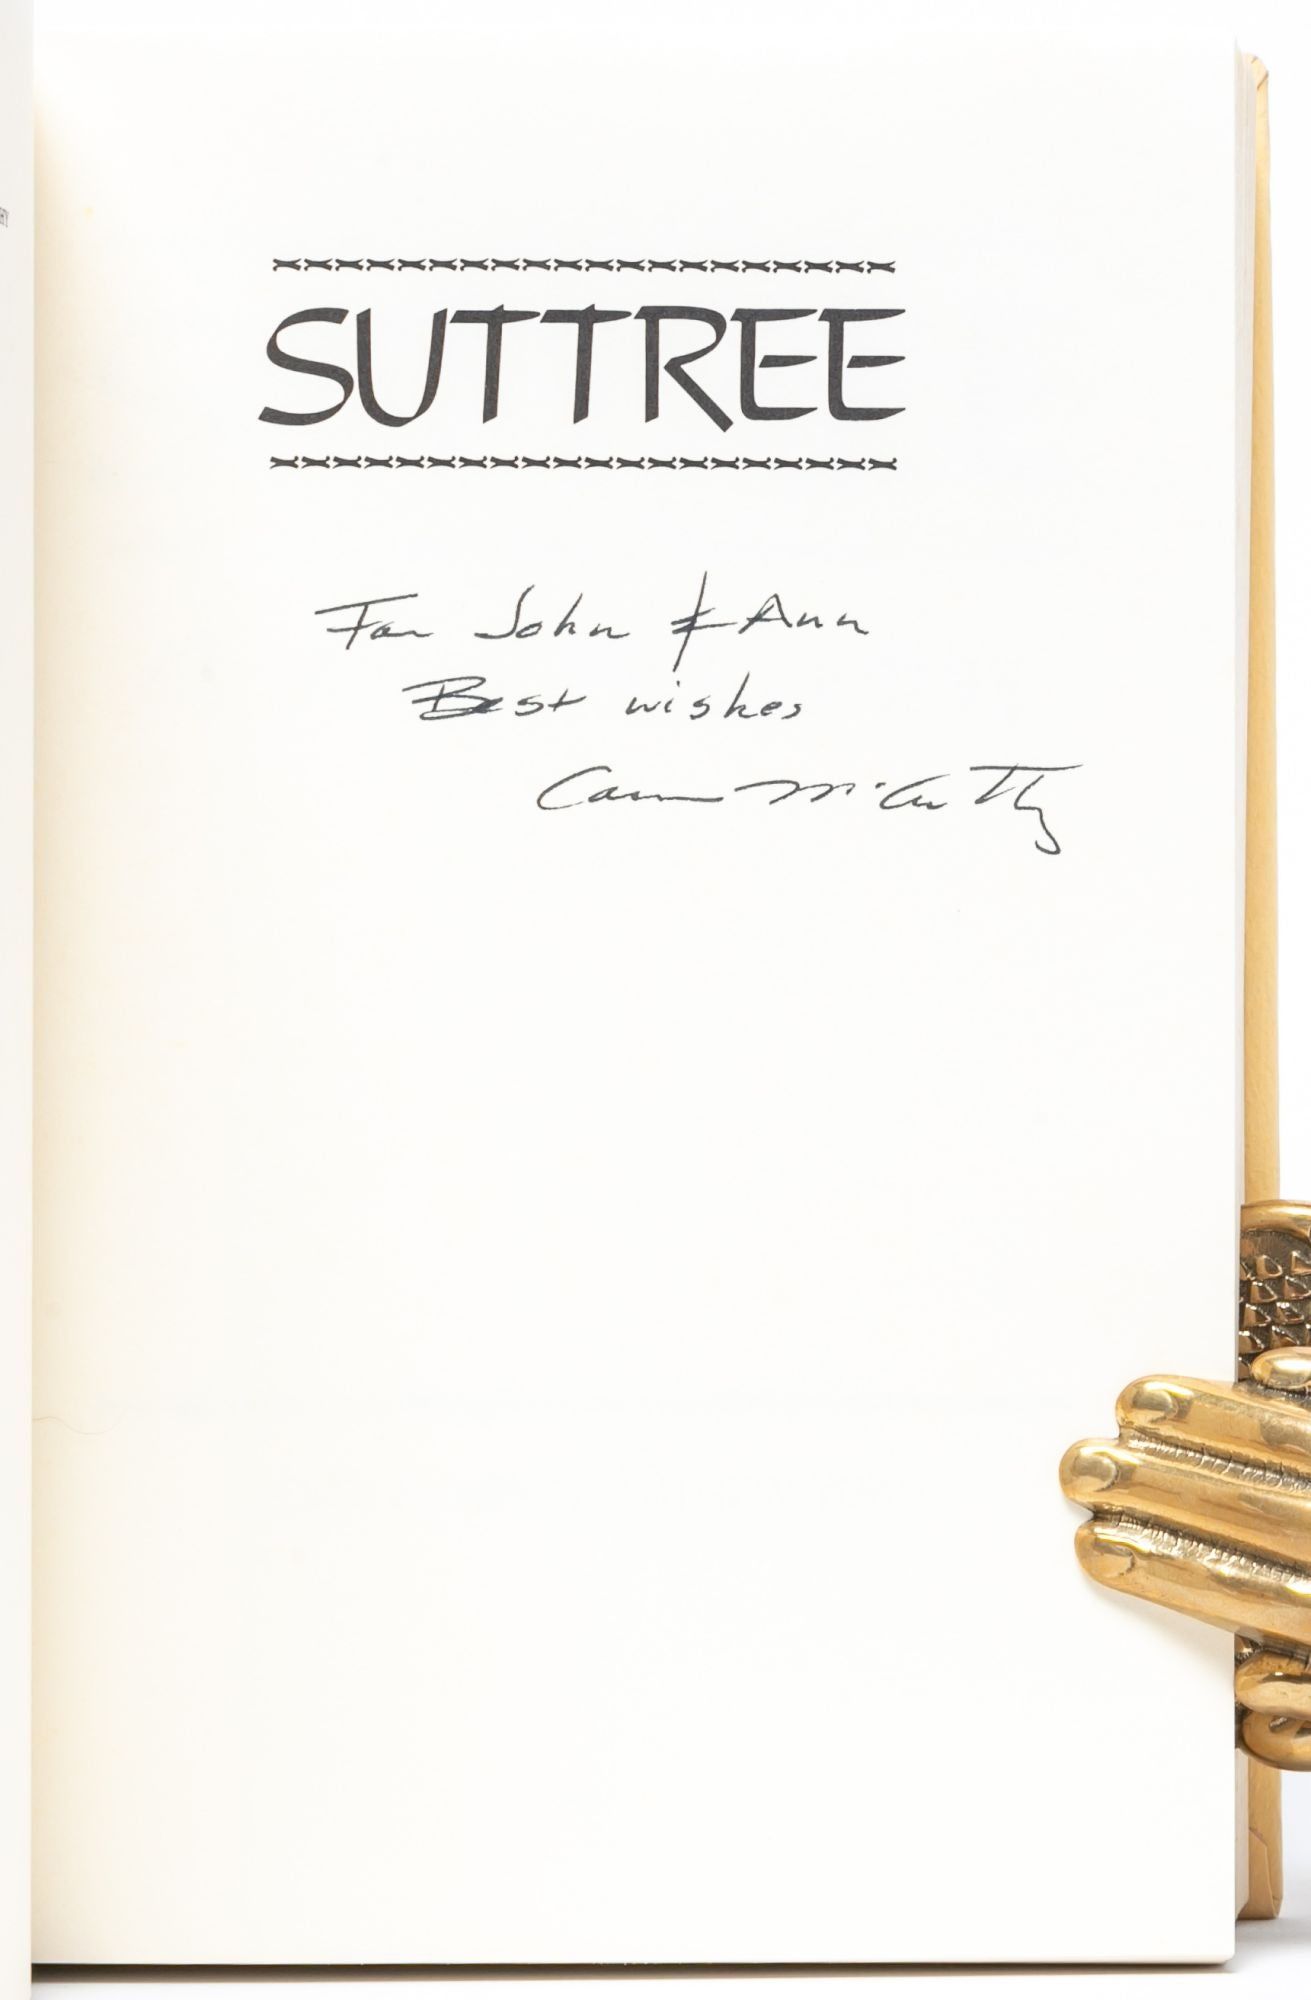 HY
SUTTREE
For John & Ann
Best wishes
Cormac McCarthy